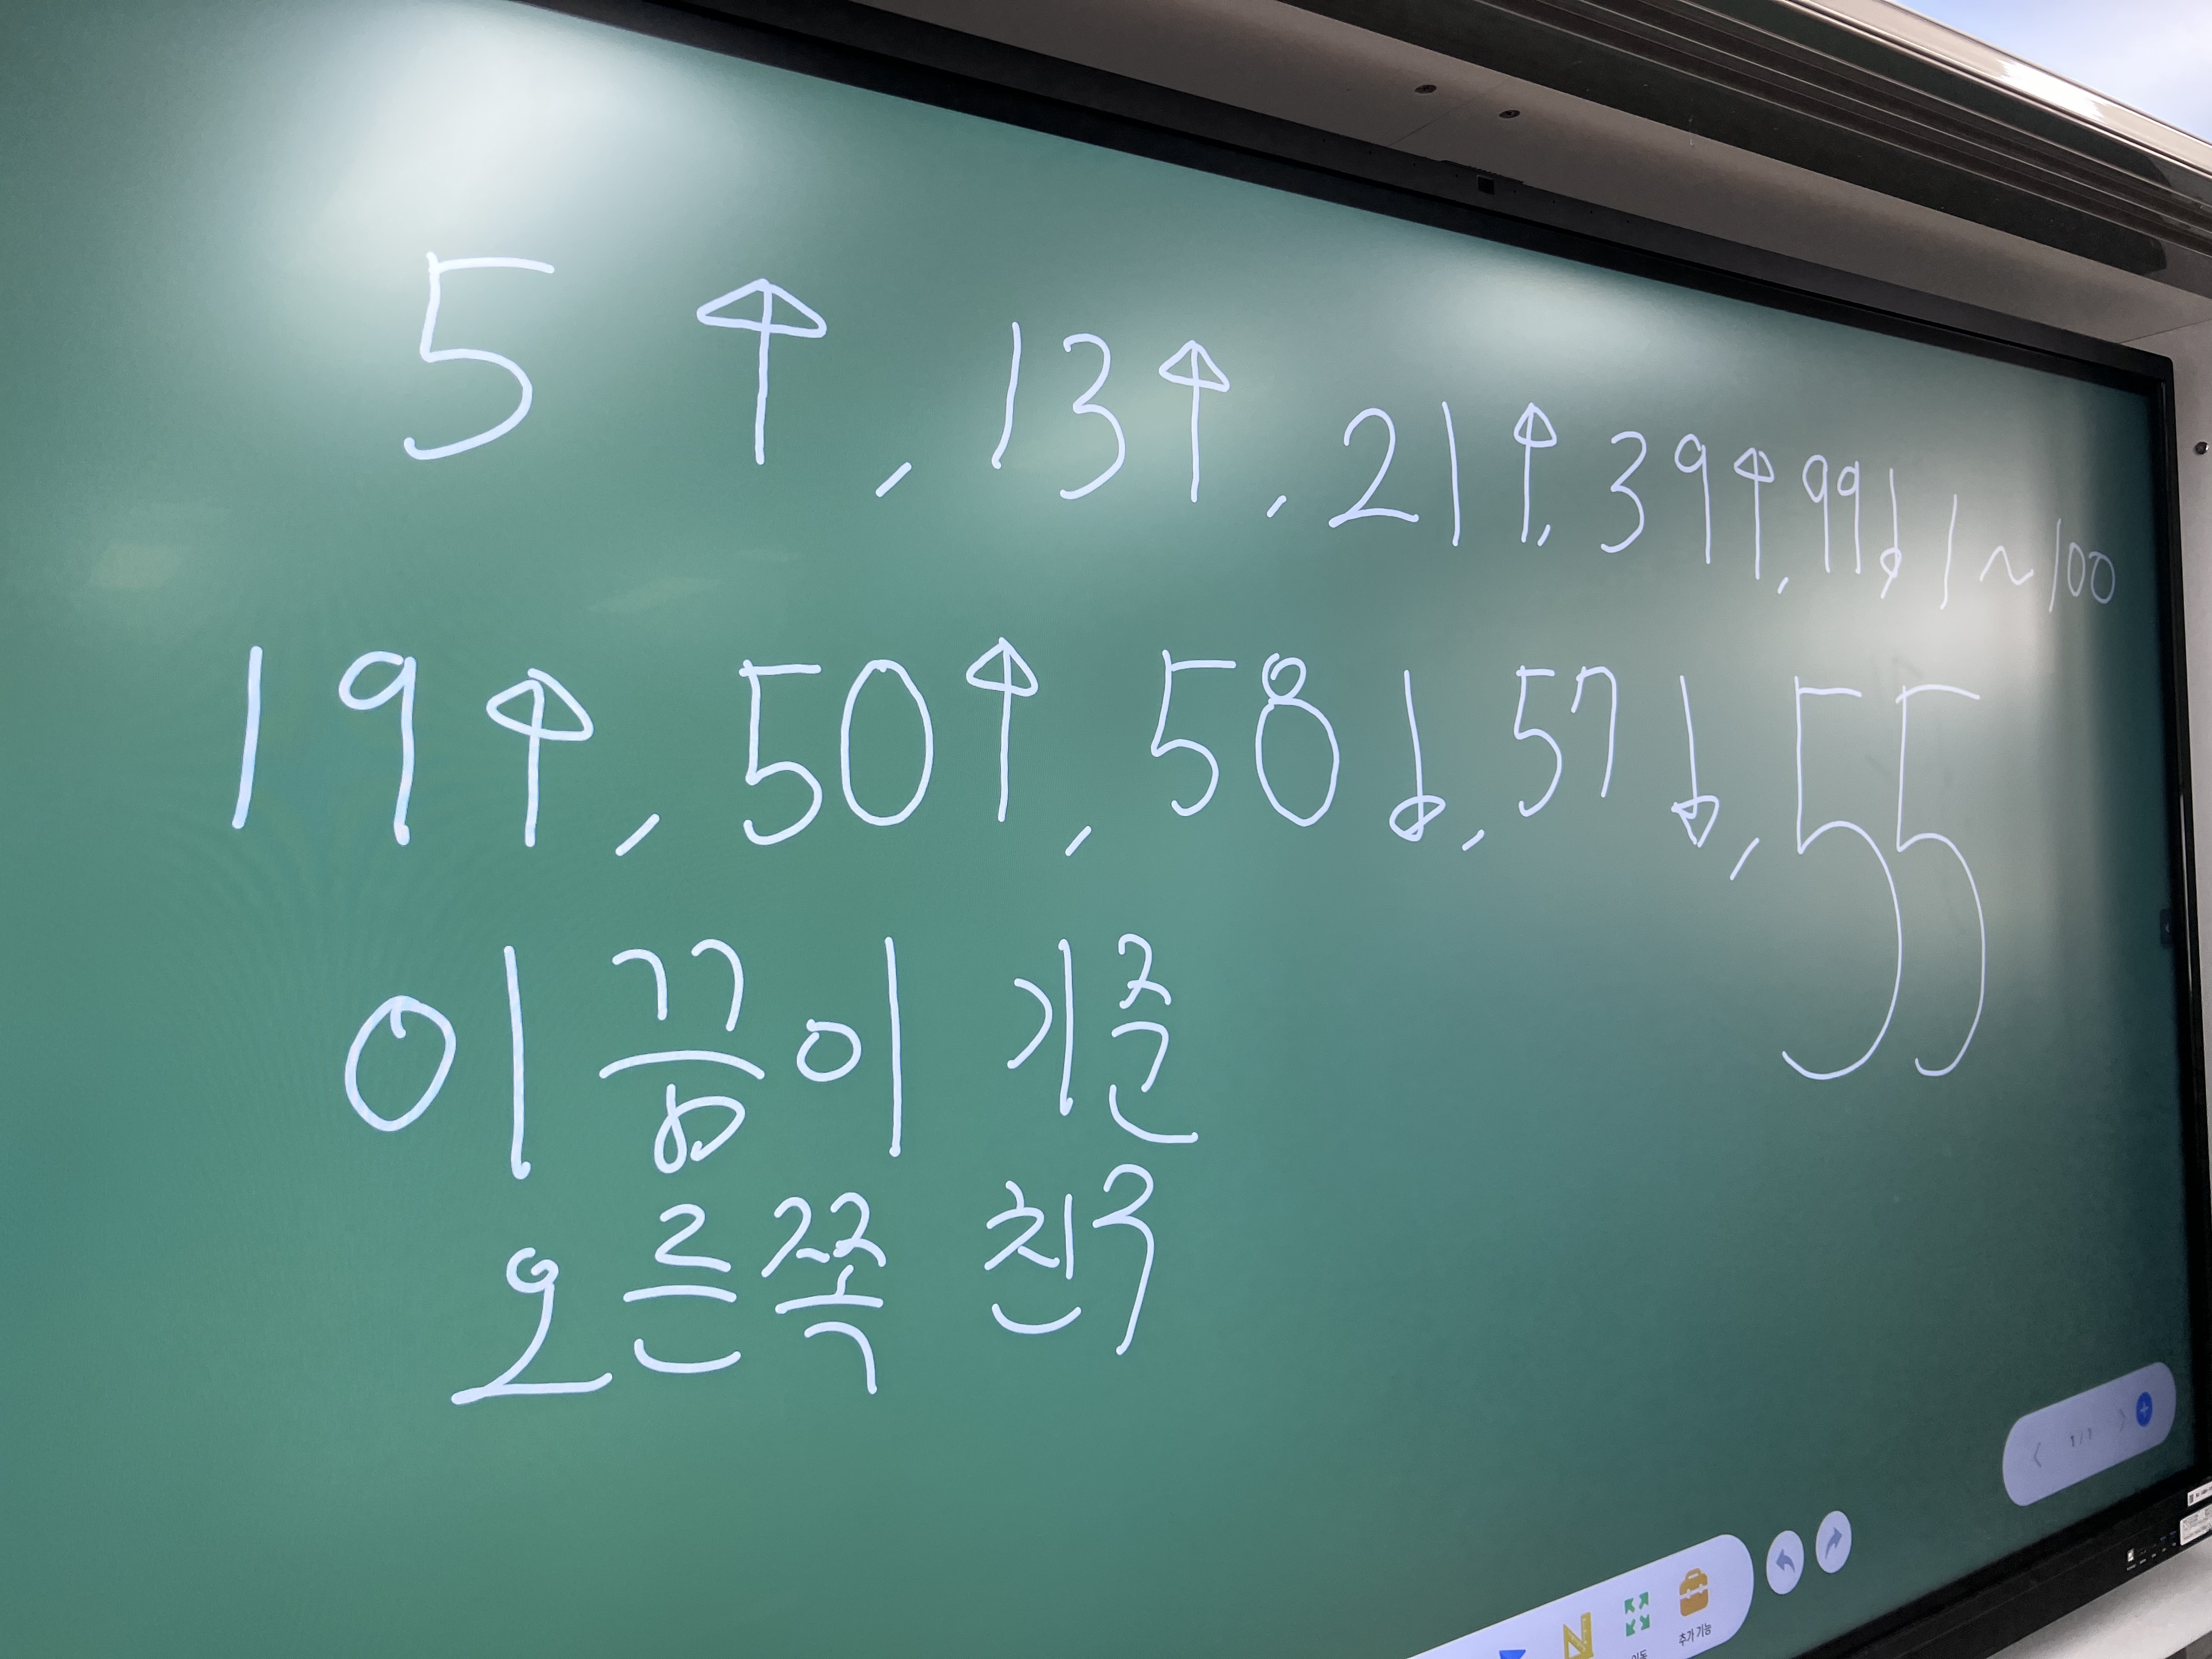 5↑, 13↑, 21↑, 39↑, 99↓ 1~100
19↑, 50↑, 58↓, 57↓, 55
이끔이 기준
오른쪽 친구
1/1
추가 기능